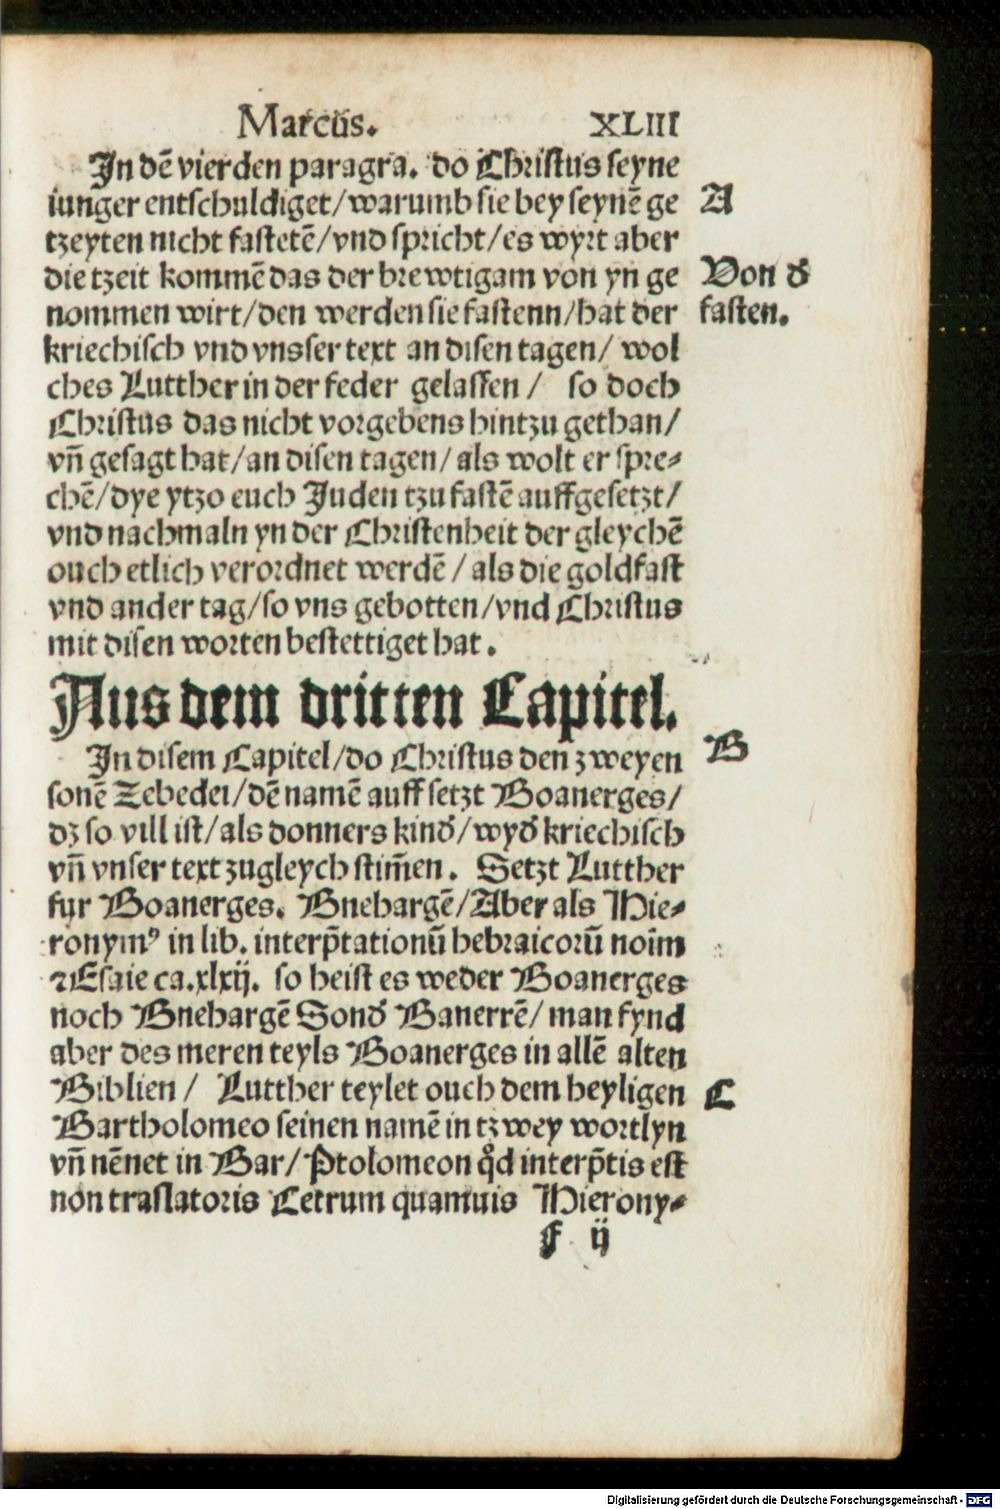 Marcus. XLIII
In dē vierden paragra. do Christus seyne
iunger entschuldiget/warumb sie bey seynē ge A
tzeyten nicht fastetē/vnd spricht/es wyrt aber
die tzeit kommē das der brewtigam von yn ge Von dʼ
nommen wirt/den werden sie fastenn/hat der fasten.
kriechisch vnd vnsser text an disen tagen/ wol
ches Lutther in der feder gelassen / so doch
Christus das nicht vorgebens hintzu gethan/
vñ gesagt hat/an disen tagen/als wolt er spre⸗
chē/dye ytzo euch Juden tzu fastē auffgesetzt/
vnd nachmaln yn der Christenheit der gleychē
ouch etlich verordnet werdē / als die goldfast
vnd ander tag/so vns gebotten/vnd Christus
mit disen worten bestettiget hat.
Aus dem dritten Capitel.
In disem Capitel/do Christus den zweyen B
sonē Zebedei/dē namē auff setzt Boanerges/
dz so vill ist/als donners kindʼ/wydʼ kriechisch
vñ vnser text zugleych stim̄en. Setzt Lutther
fur Boanerges. Bnehargē/Aber als Hie⸗
ronymꝰ in lib. interp̄tationū hebraicorū noīm
⁊ Esaie ca.xlxij. so heist es weder Boanerges
noch Bnehargē Sondʼ Banerrē/ man fynd
aber des meren teyls Boanerges in allē alten
Biblien / Lutther teylet ouch dem heyligen C
Bartholomeo seinen namē in tzwey wortlyn
vñ nēnet in Bar/ Ptolomeon qd̛ interp̄tis est
non traslatoris Cetrum quamuis Hierony⸗
f ij
Digitalisierung gefördert durch die Deutsche Forschungsgemeinschaft - DFG